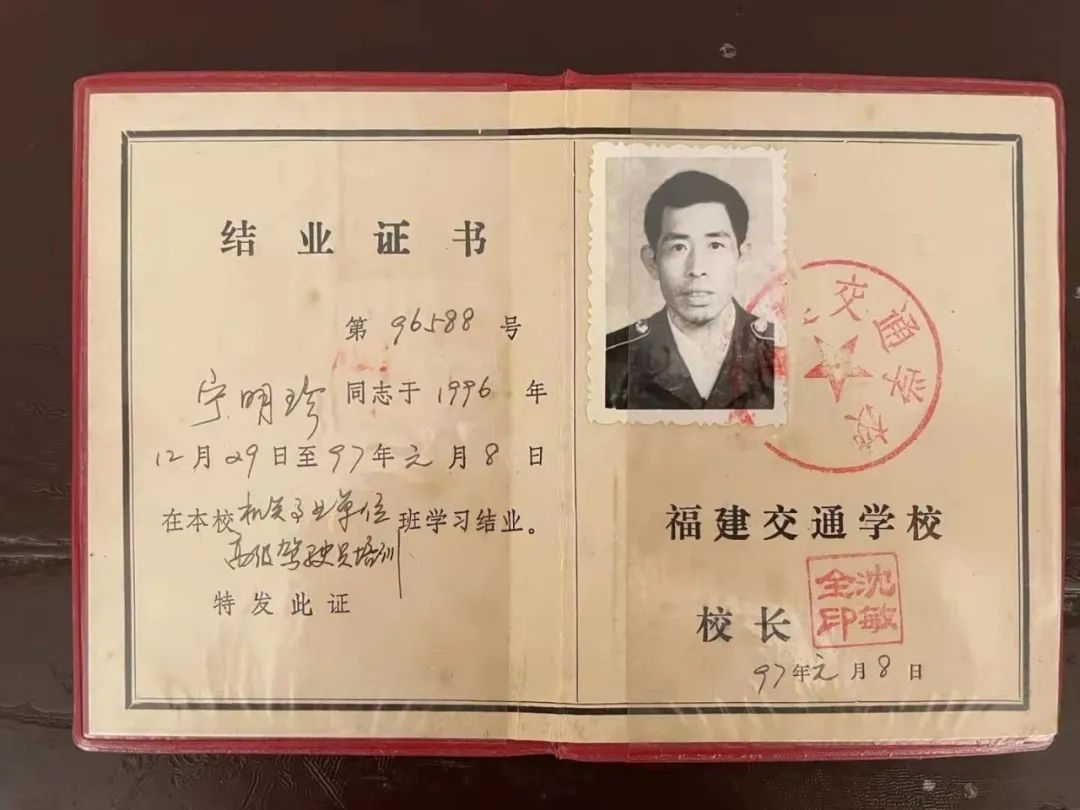 结业证书
第 96588 号
宁明珍 同志于 1996 年
12 月 29 日至 97 年 元 月 8 日
在本校 机关事业单位 班学习结业。
高级驾驶员培训
特发此证
交通学校
福建交通学校
校长
沈敏
全印
97 年 元 月 8 日